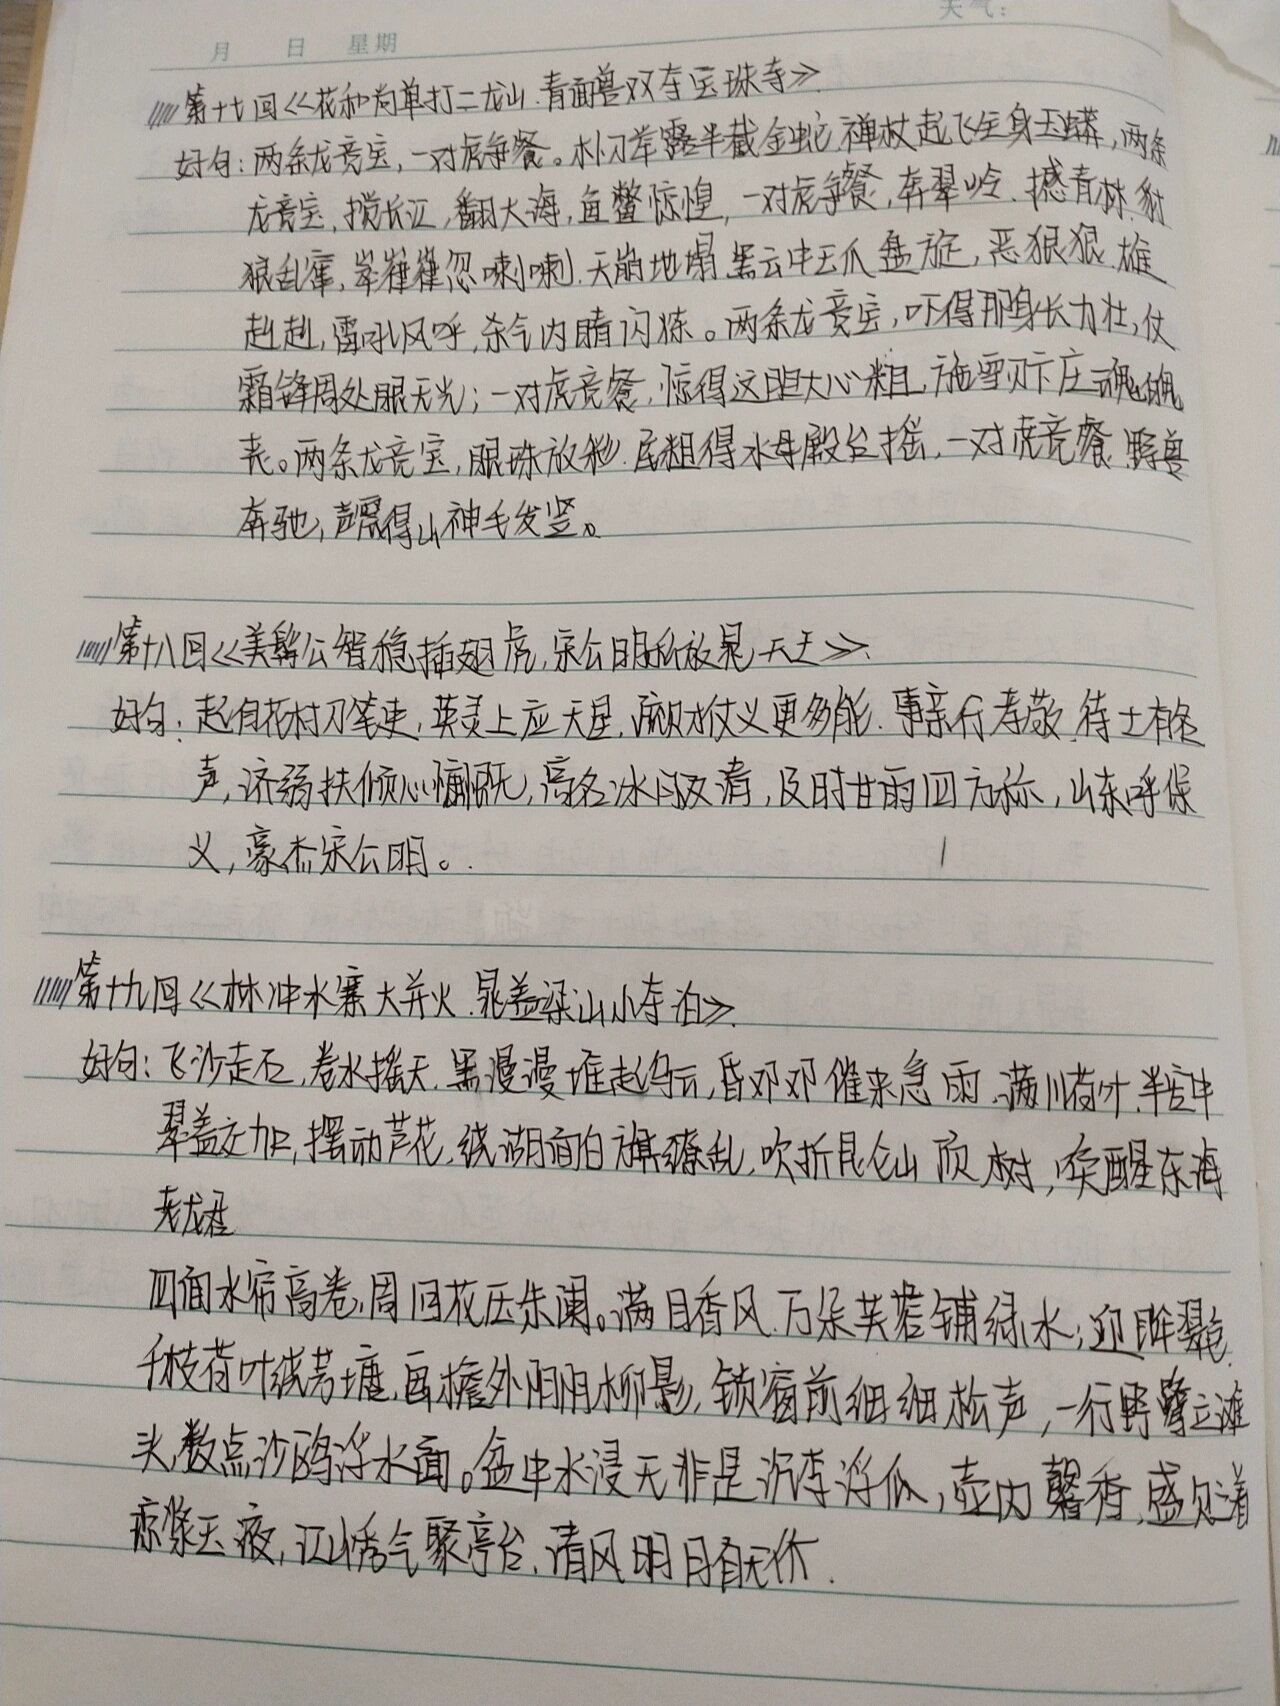 天气：
月 日 星期
第十七回《花和尚单打二龙山.青面兽双夺宝珠寺》
好句：两条龙竞宝，一对虎争餐。朴刀举露半截金蛇,禅杖起飞全身玉蟒，两条
龙竞宝，搅长江，翻大海，鱼鳖惊惶，一对虎争餐，奔翠岭.撼青林.豺
狼乱窜，崒嵂嵂忽喇喇.天崩地塌.黑云中玉爪盘旋，恶狠狠.雄
赳赳，雷吼风呼，杀气内睛闪烁。两条龙竞宝，吓得那身长力壮，仗
霜锋周处眼无光；一对虎竞餐，惊得这胆大心粗，施雪刃卞庄魂魄
丧。两条龙竞宝，眼珠放彩.尾粗得水母殿台摇，一对虎竞餐.野兽
奔驰，声震得山神毛发竖。
第十八回《美髯公智稳插翅虎，宋公明私放晁天王》
好句：起自花村刀笔吏，英灵上应天星，疏财仗义更多能.事亲行孝敬.待士有名
声，济弱扶倾心慷慨，高名冰月双清，及时甘雨四方称，山东呼保
义，豪杰宋公明。
第十九回《林冲水寨大并火.晁盖梁山小夺泊》
好句：飞沙走石，卷水摇天.黑漫漫堆起乌云，昏邓邓催来急雨.满川荷叶.半空中
翠盖交加，摆动芦花，绕湖面白旗缭乱，吹折昆仑山顶树，唤醒东海
老龙君
四面水帘高卷，周回花压朱阑。满目香风.万朵芙蓉铺绿水；迎眸翠色.
千枝荷叶绕芳塘.画檐外阴阴柳影，锁窗前细细松声，一行野鹭立滩
头，数点沙鸥浮水面。盆中水浸无非是沉李浮瓜，壶内馨香，盛贮着
琼浆玉液，江山秀气聚亭台，清风明月自无休.